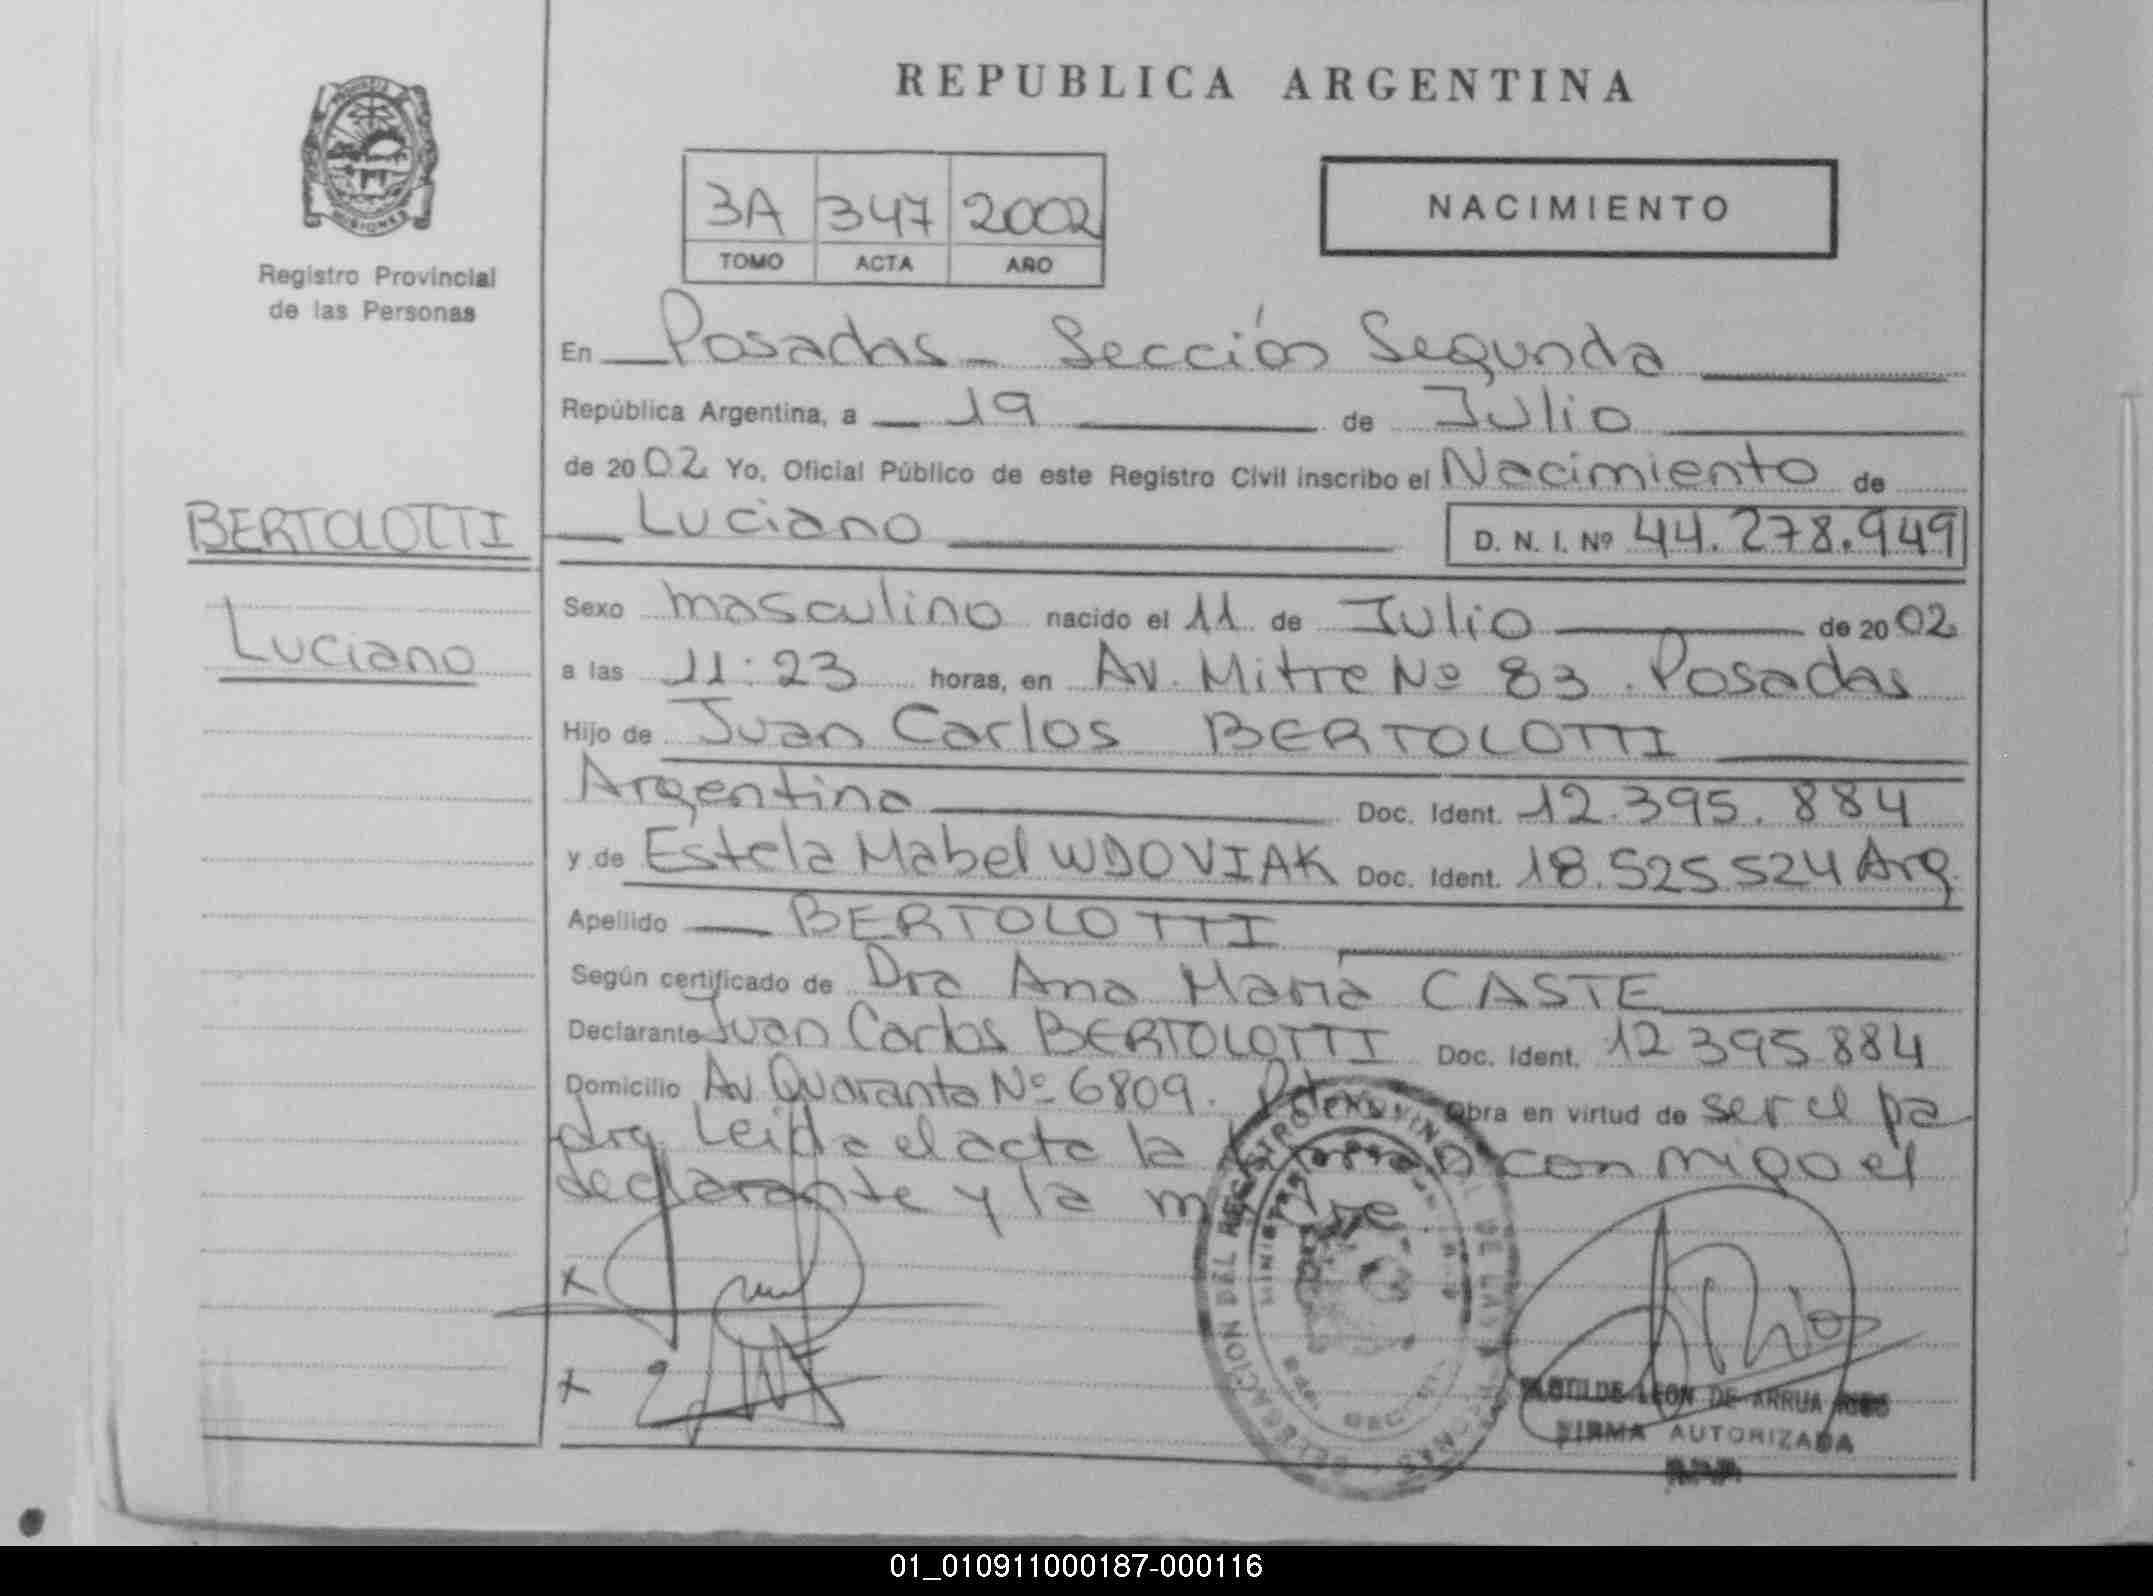 REPUBLICA ARGENTINA
3A 347 2002
TOMO ACTA AÑO
NACIMIENTO
Registro Provincial
de las Personas
En Posadas - Sección Segunda
República Argentina, a 19 de Julio
de 2002 Yo, Oficial Público de este Registro Civil inscribo el Nacimiento de
BERTOLOTTI
Luciano D. N. I. Nº 44.278.949
Luciano
Sexo masculino nacido el 11 de Julio de 2002
a las 11:23 horas, en Av. Mitre Nº 83. Posadas
Hijo de Juan Carlos BERTOLOTTI
Argentino Doc. Ident. 12.395.884
y de Estela Mabel WDOVIAK Doc. Ident. 18.525.524 Arg.
Apellido BERTOLOTTI
Según certificado de Dra Ana María CASTE
Declarante Juan Carlos BERTOLOTTI Doc. Ident. 12 395.884
Domicilio Av Quaranta Nº 6809. Obra en virtud de ser el pa
dre. Leida el acta la conmigo el
declarante y la madre.
DELEGACION DEL REGISTRO PROVINCIAL DE LAS PERSONAS
LEON DE ARRUA
FIRMA AUTORIZADA
01_010911000187-000116